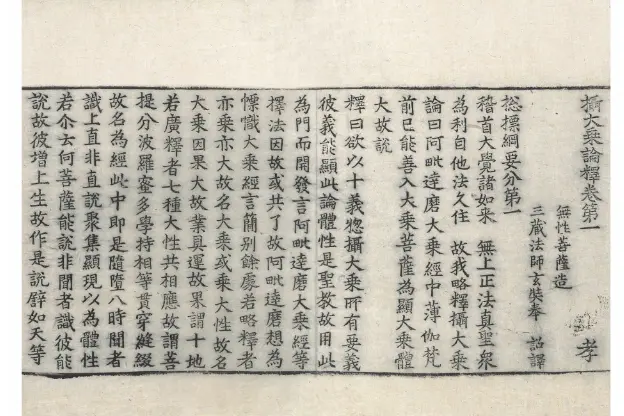 攝大乘論釋卷第一 孝
無性菩薩造
三藏法師玄奘奉 詔譯
惣摽綱要分第一
稽首大覺諸如來 無上正法真聖衆
為利自他法久住 故我略釋攝大乘
論曰阿毗達磨大乘經中薄伽梵
前已能善入大乘菩薩為顯大乘體
大故說
釋曰欲以十義惣攝大乘所有要義
彼義能顯此論體性是聖教故用此
為門而開發言阿毗達磨大乘經等
擇法因故或共了故阿毗達磨想為
慓幟大乘經言簡別餘處若略釋者
亦乘亦大故名大乘或乘大性故名
大乘因果大故業具運故果謂十地
若廣釋者七種大性共相應故謂菩
提分波羅蜜多學持相等貫穿縫綴
故名為經此中即是隨墮八時聞者
識上直非直說聚集顯現以為體性
若尒去何菩薩能說非聞者識彼能
說故彼增上生故作是說譬如天等